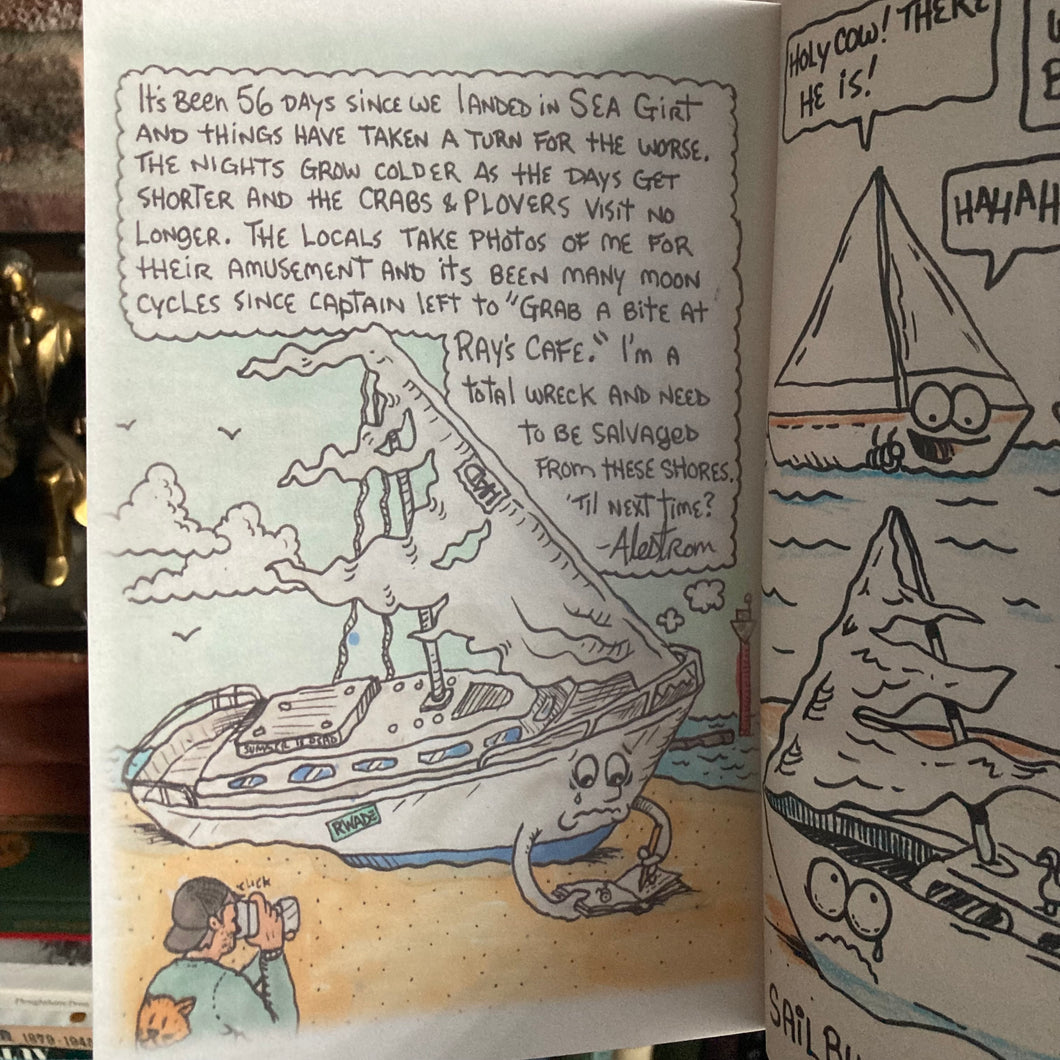 It's Been 56 DAYS SINCE WE LANDED IN SEA GIRT
AND THINGS HAVE TAKEN A TURN FOR THE WORSE.
THE NIGHTS GROW COLDER AS THE DAYS GET
SHORTER AND THE CRABS & PLOVERS VISIT NO
LONGER. THE LOCALS TAKE PHOTOS OF ME FOR
THEIR AMUSEMENT AND ITS BEEN MANY MOON
CYCLES SINCE CAPTAIN LEFT TO "GRAB A BITE AT
RAY'S CAFE." I'M A
TOTAL WRECK AND NEED
TO BE SALVAGED
FROM THESE SHORES.
'TIL NEXT TIME?
-Alestrom
SUMMER IS DEAD
RWADE
CLICK
HOLY COW! THERE
HE IS!
HAHAH
SAILBU